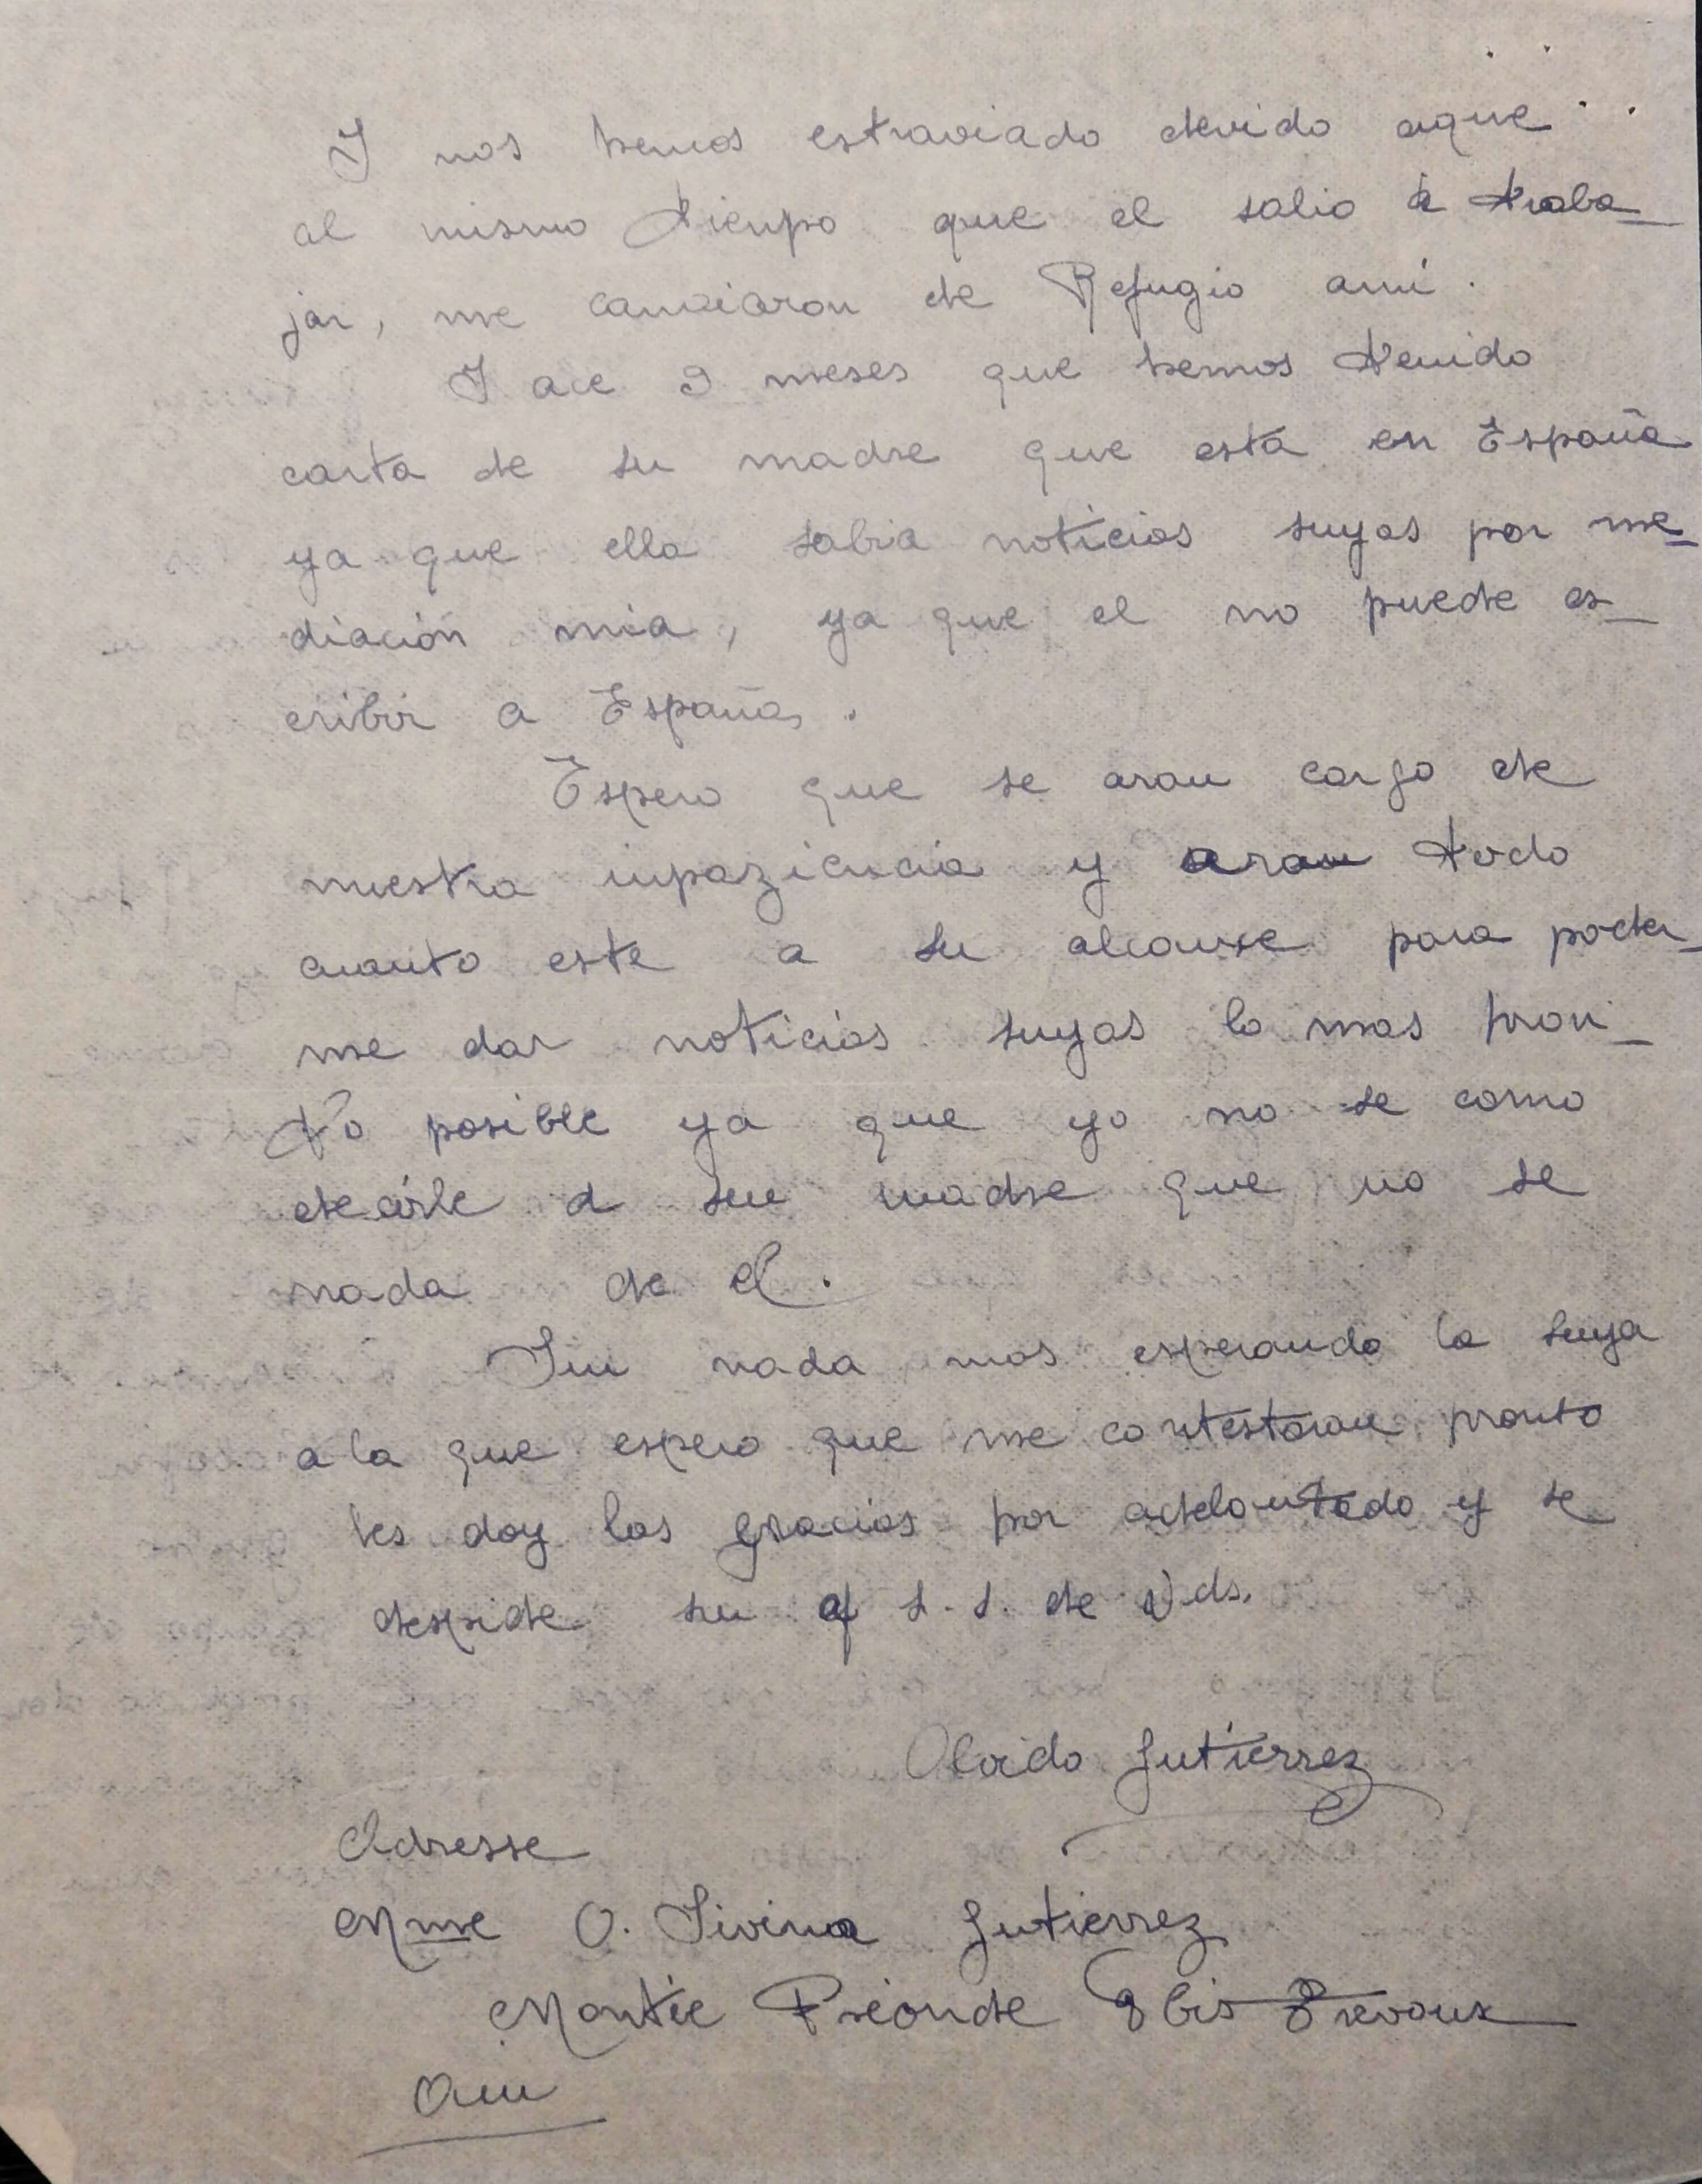 I nos hemos estraviado devido aque
al mismo tienpo que el salio a traba-
jar, me canviaron de Refugio ami.
I ace 9 meses que hemos tenido
carta de su madre que esta en España
ya que ella sabia noticias suyas por me-
diación mia, ya que el no puede es-
cribir a España.
Espero que se aran cargo de
nuestra inpaziencia y aran todo
cuanto este a su alcanse para poder-
me dar noticias suyas lo mas pron-
to posible ya que yo no se como
decirle a su madre que no se
nada de el.
Sin nada mas esperando la suya
a la que espero que me contestaran pronto
les doy las gracias por adelantado y se
despide su af s. s. de Vds.
Olvido Gutierrez
Adresse
Mme O. Sivina Gutierrez
Montée 9 bis
Ain